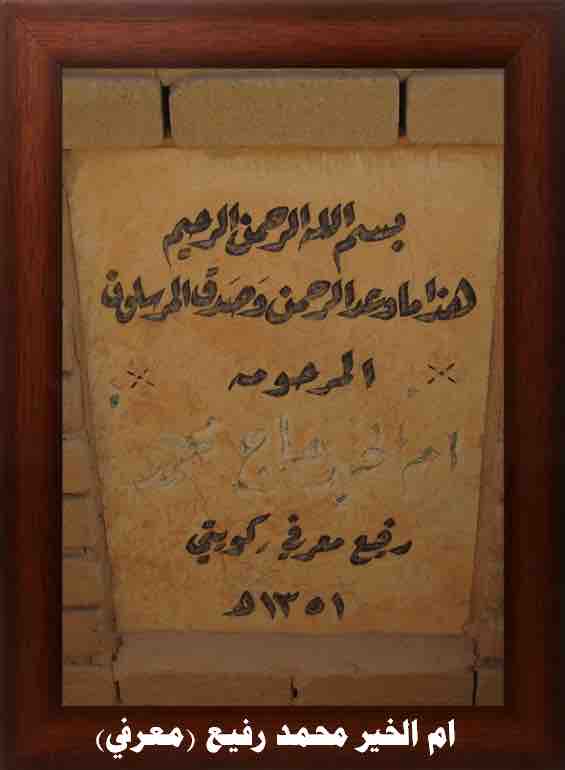 بسم الله الرحمن الرحيم
هذا ما وعد الرحمن وصدق المرسلون
المرحومه
ام الخير حاج محمد
رفيع معرفي كويتي
١٣٥١ھ
ام الخير محمد رفيع (معرفي)